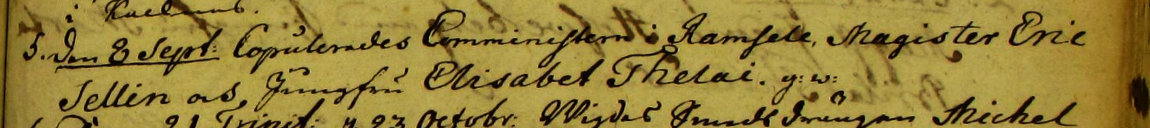 5. den 8 Sept: Copulerades Comministern i Ramsele, Magister Eric
Sellin och Jungfru Elisabet Thelai. g: w:
21 Trinit: 23 Octobr: Wigdes drängen Michel